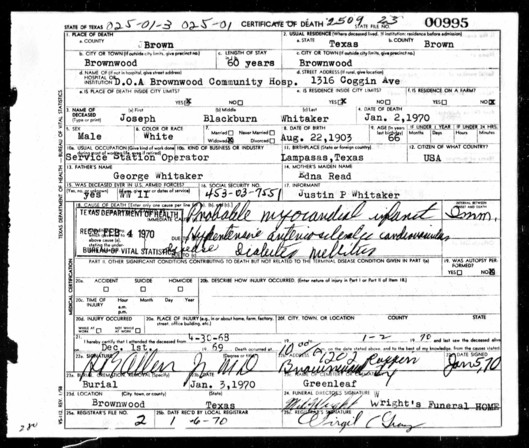 STATE OF TEXAS 025-01-3 025-01 CERTIFICATE OF DEATH 2509 STATE FILE NO. 23 00995
1. PLACE OF DEATH
2. USUAL RESIDENCE (Where deceased lived. If institution: residence before admission)
a. COUNTY Brown
a. STATE Texas
b. COUNTY Brown
b. CITY OR TOWN (If outside city limits, give precinct no.) Brownwood
c. LENGTH OF STAY 60 years
c. CITY OR TOWN (If outside city limits, give precinct no.) Brownwood
d. NAME OF (If not in hospital, give street address) HOSPITAL OR INSTITUTION D.O.A Brownwood Community Hosp.
d. STREET ADDRESS (If rural, give location) 1316 Coggin Ave
e. IS PLACE OF DEATH INSIDE CITY LIMITS? YES X NO
e. IS RESIDENCE INSIDE CITY LIMITS? YES X NO
f. IS RESIDENCE ON A FARM? YES NO X
3. NAME OF DECEASED (Type or print) (a) First Joseph (b) Middle Blackburn (c) Last Whitaker
4. DATE OF DEATH Jan. 2,1970
5. SEX Male
6. COLOR OR RACE White
7. Married Never Married Widowed X Divorced
8. DATE OF BIRTH Aug. 22,1903
9. AGE (In years last birthday) 66
IF UNDER 1 YEAR Months Days
IF UNDER 24 HRS. Hours Minutes
10a. USUAL OCCUPATION Service Station Operator
10b. KIND OF BUSINESS OR INDUSTRY
11. BIRTHPLACE (State or foreign country) Lampasas,Texas
12. CITIZEN OF WHAT COUNTRY? USA
13. FATHER'S NAME George Whitaker
14. MOTHER'S MAIDEN NAME Edna Read
15. WAS DECEASED EVER IN U.S. ARMED FORCES? yes
16. SOCIAL SECURITY NO. 453-03-7551
17. INFORMANT Justin P Whitaker
18. CAUSE OF DEATH
TEXAS DEPARTMENT OF HEALTH
REC'D FEB 4 1970
BUREAU OF VITAL STATISTICS
Probable myocardial infarct
Hypertensive arteriosclerotic cardiovascular
Diabetes mellitus
PART II. OTHER SIGNIFICANT CONDITIONS CONTRIBUTING TO DEATH BUT NOT RELATED TO THE TERMINAL DISEASE CONDITION GIVEN IN PART I(a)
19. WAS AUTOPSY PERFORMED? YES NO X
20a. ACCIDENT SUICIDE HOMICIDE
20b. DESCRIBE HOW INJURY OCCURRED. (Enter nature of injury in Part I or Part II of item 18.)
20c. TIME OF INJURY Hour Month Day Year a.m. p.m.
20d. INJURY OCCURRED WHILE AT WORK NOT WHILE AT WORK
20e. PLACE OF INJURY (e.g., in or about home, farm, factory, street, office building, etc.)
20f. CITY, TOWN, OR LOCATION COUNTY STATE
21. I hereby certify that I attended the deceased from 4-30-68 to 1-2 19 70 and last saw the deceased alive on Dec. 1st., 19 69
(Degree or title) M.D.
Brownwood
DATE SIGNED Jan 5, 70
Burial
Jan. 3,1970
Greenleaf
23d. LOCATION (City, town, or county) (State) Brownwood Texas
24. FUNERAL DIRECTOR'S SIGNATURE Wright's Funeral HOME
25a. REGISTRAR'S FILE NO. 2
25b. DATE REC'D BY LOCAL REGISTRAR 1-6-70
25c. REGISTRAR'S SIGNATURE Virgil C Gray
TEXAS DEPARTMENT OF HEALTH BUREAU OF VITAL STATISTICS
MEDICAL CERTIFICATION